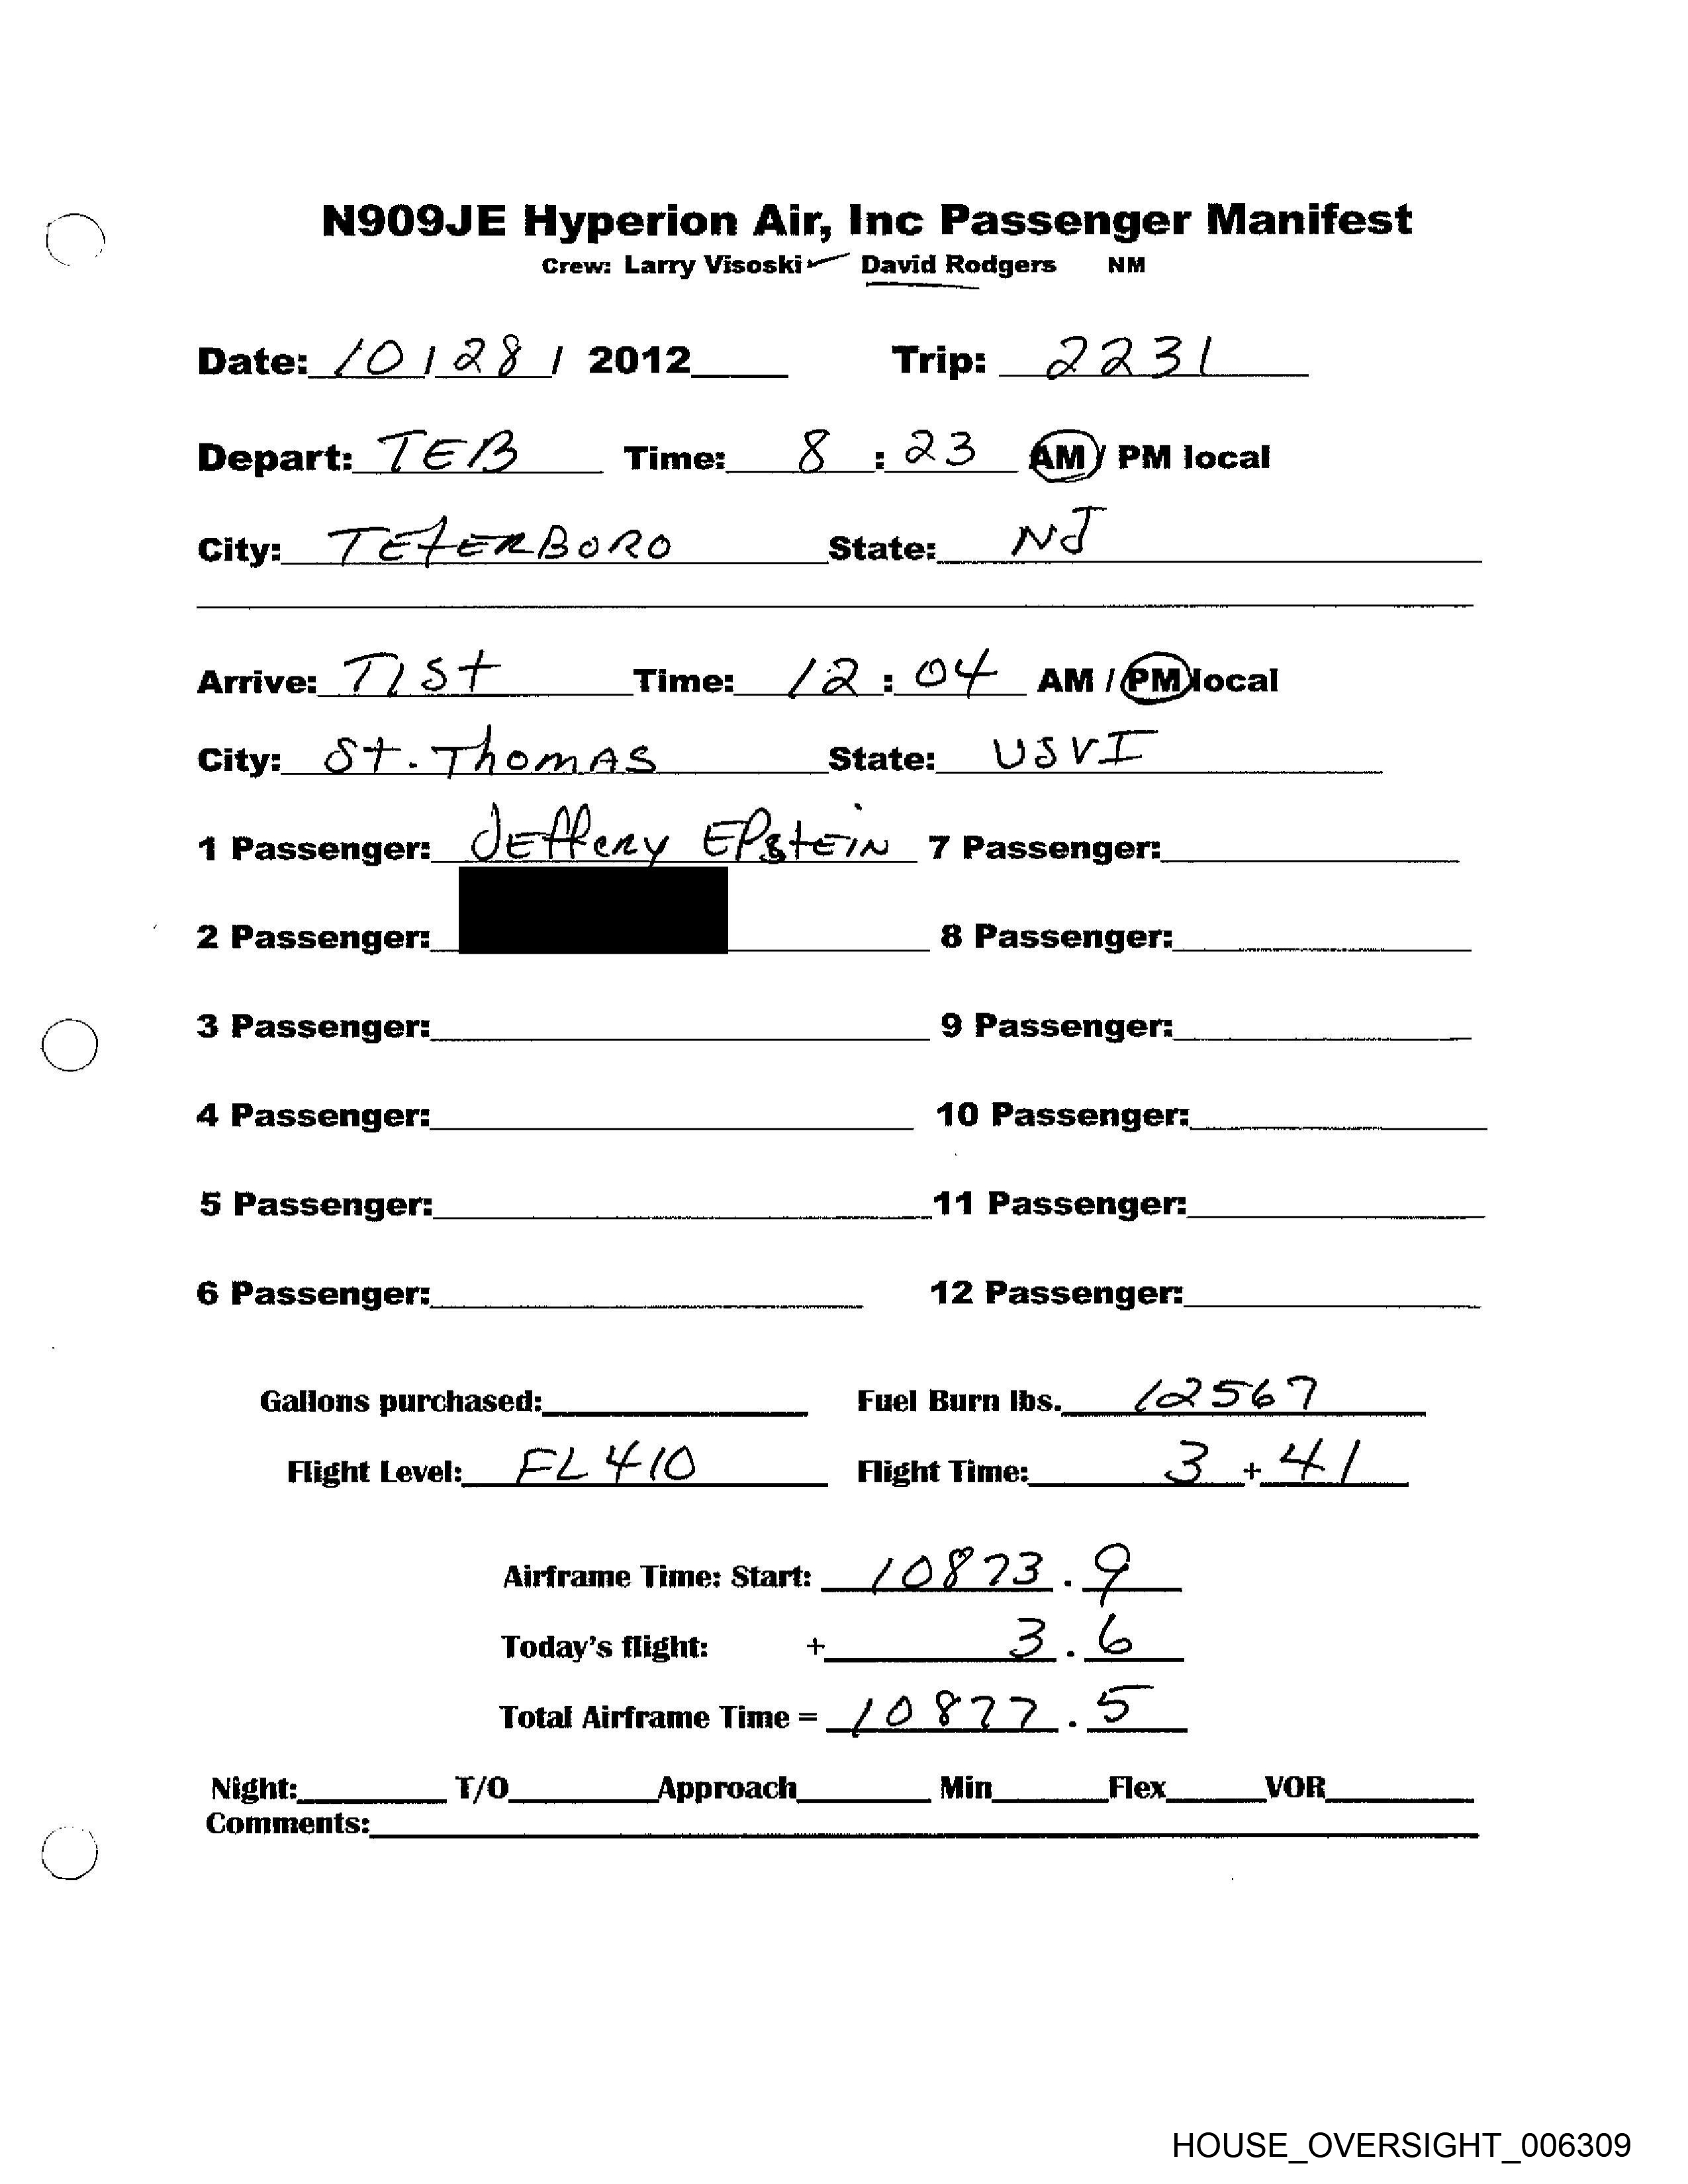 N909JE Hyperion Air, Inc Passenger Manifest
Crew: Larry Visoski David Rodgers NM
Date: 10 / 28 / 2012 Trip: 2231
Depart: TEB Time: 8 : 23 AM / PM local
City: TETERBORO State: NJ
Arrive: TIST Time: 12 : 04 AM / PM local
City: St. Thomas State: USVI
1 Passenger: Jeffery Epstein 7 Passenger:
2 Passenger: 8 Passenger:
3 Passenger: 9 Passenger:
4 Passenger: 10 Passenger:
5 Passenger: 11 Passenger:
6 Passenger: 12 Passenger:
Gallons purchased: Fuel Burn lbs. 12567
Flight Level: FL 410 Flight Time: 3 + 41
Airframe Time: Start: 10873 . 9
Today's flight: + 3 . 6
Total Airframe Time = 10877 . 5
Night: T/O Approach Min Flex VOR
Comments:
HOUSE_OVERSIGHT_006309